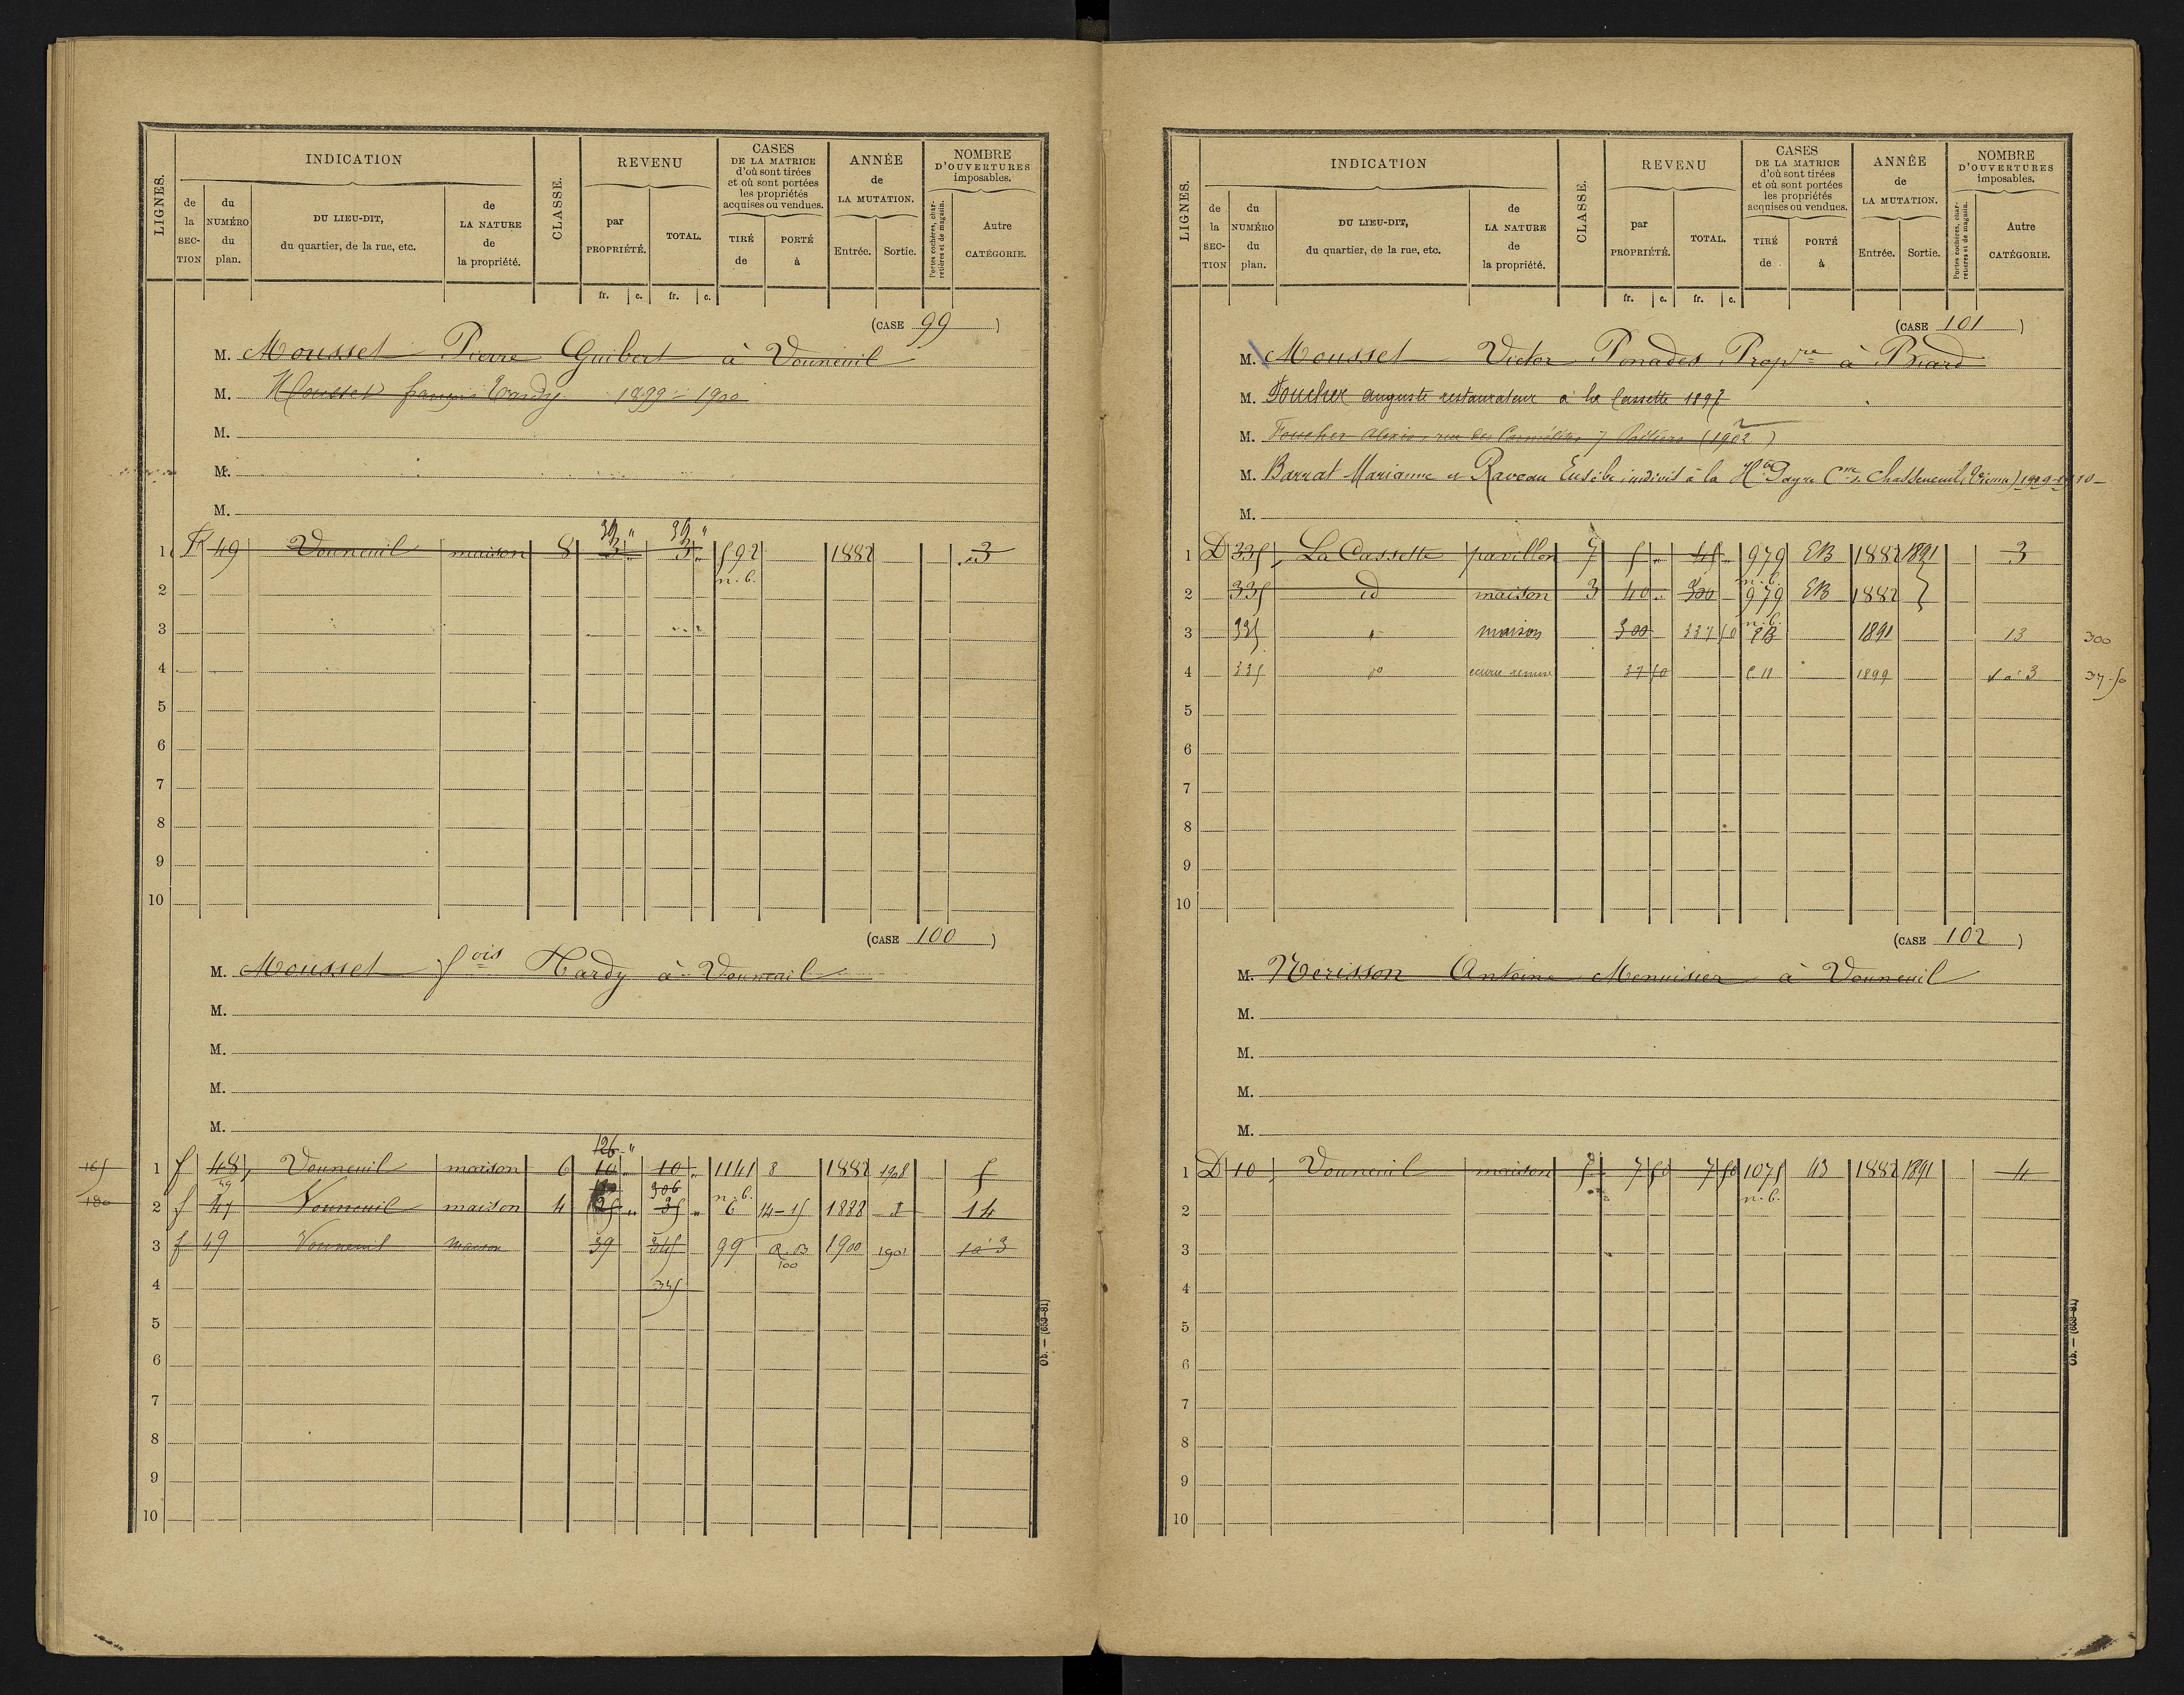 LIGNES. INDICATION CLASSE. REVENU CASES DE LA MATRICE d'où sont tirées et où sont portées les propriétés acquises ou vendues. ANNÉE de LA MUTATION. NOMBRE D'OUVERTURES imposables.
de la SECTION du NUMÉRO du plan. DU LIEU-DIT, du quartier, de la rue, etc. de LA NATURE de la propriété. par PROPRIÉTÉ. TOTAL. TIRÉ de PORTÉ à Entrée. Sortie. Portes cochères, charretières et de magasin. Autre CATÉGORIE.
fr. c. fr. c.
(CASE 99)
M. Mousset Pierre Guibert à Vouneuil
M. Mousset françois 1899 - 1900
M.
M.
M.
39 " 39 "
1 F 49 Vouneuil maison 8 3 " 3 " 592 1882 3
n. b.
2
3
4
5
6
7
8
9
10
(CASE 100)
M. Mousset fois Hardy à Vouneuil
M.
M.
M.
M.
126 "
165 1 f 48 Vouneuil maison 6 10 10 " 1141 8 1882 1908 5
49 306 n. b.
180 2 f 47 Vouneuil maison 4 25 " 35 " 6 14-15 1888 14
3 f 49 Vouneuil maison 39 345 99 1900 1901 1 à 3
100
4 345
5
6
7
8
9
10
Ob. — (659-81)
LIGNES. INDICATION CLASSE. REVENU CASES DE LA MATRICE d'où sont tirées et où sont portées les propriétés acquises ou vendues. ANNÉE de LA MUTATION. NOMBRE D'OUVERTURES imposables.
de la SECTION du NUMÉRO du plan. DU LIEU-DIT, du quartier, de la rue, etc. de LA NATURE de la propriété. par PROPRIÉTÉ. TOTAL. TIRÉ de PORTÉ à Entrée. Sortie. Portes cochères, charretières et de magasin. Autre CATÉGORIE.
fr. c. fr. c.
(CASE 101)
M. Mousset Victor Propre à Biard
M. Foucher auguste restaurateur à la Cassette 1897
M. Foucher rue des Carmélites 7 Poitiers (1902)
M. Barrat Marianne et Raveau Eusèbe, indivis à la Cne de Chasseneuil (Vienne) 1909-1910
M.
1 D 335 La Cassette pavillon 7 5 " 45 " 979 EB 1882 1891 3
n. b.
2 335 id maison 3 40 " 300 979 EB 1882
n. b.
3 335 " maison 300 337 50 EB 1891 13 300
4 335 do écurie remise 37 50 C N 1899 1 à 3 37.50
5
6
7
8
9
10
(CASE 102)
M. Nerisson Antoine Menuisier à Vouneuil
M.
M.
M.
M.
1 D 10 Vouneuil maison 5 7 50 7 50 1075 43 1882 1891 4
n. b.
2
3
4
5
6
7
8
9
10
Ob. — (659-81)